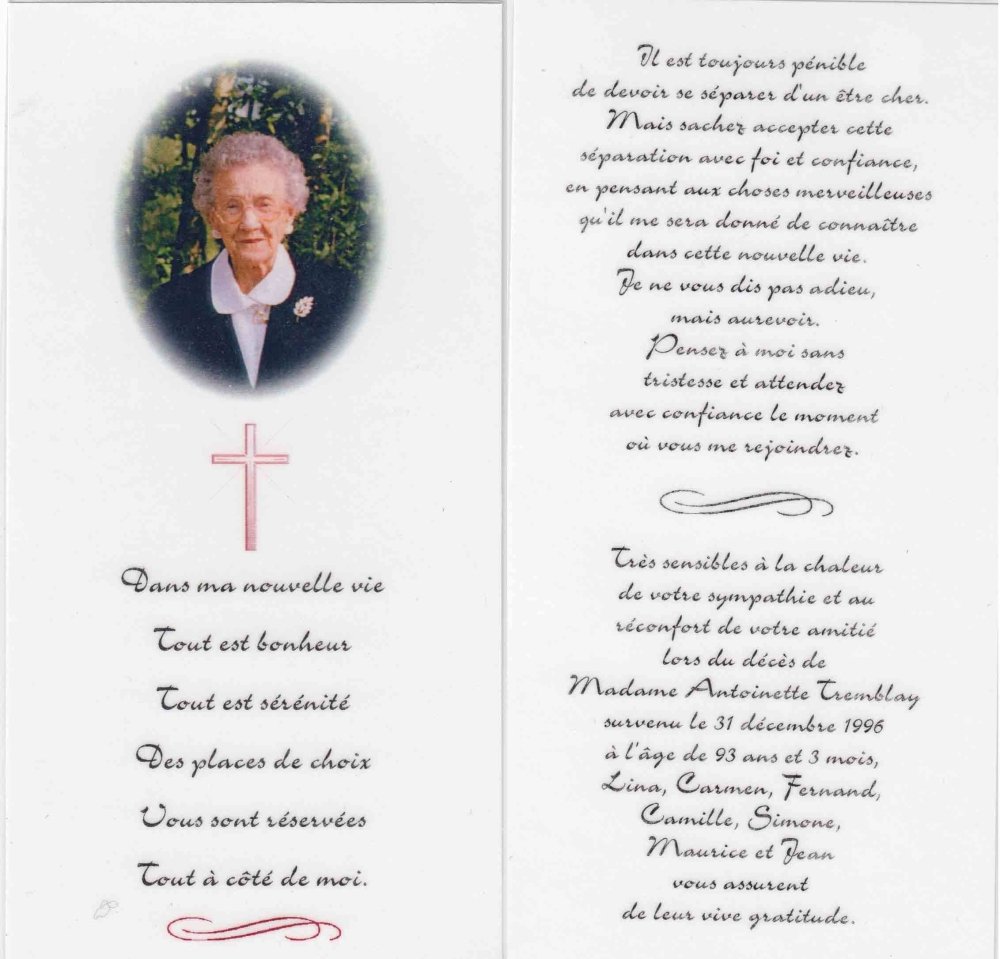 Dans ma nouvelle vie
Tout est bonheur
Tout est sérénité
Des places de choix
Vous sont réservées
Tout à côté de moi.
Il est toujours pénible
de devoir se séparer d'un être cher.
Mais sachez accepter cette
séparation avec foi et confiance,
en pensant aux choses merveilleuses
qu'il me sera donné de connaître
dans cette nouvelle vie.
Je ne vous dis pas adieu,
mais aurevoir.
Pensez à moi sans
tristesse et attendez
avec confiance le moment
où vous me rejoindrez.
Très sensibles à la chaleur
de votre sympathie et au
réconfort de votre amitié
lors du décès de
Madame Antoinette Tremblay
survenu le 31 décembre 1996
à l'âge de 93 ans et 3 mois,
Lina, Carmen, Fernand,
Camille, Simone,
Maurice et Jean
vous assurent
de leur vive gratitude.